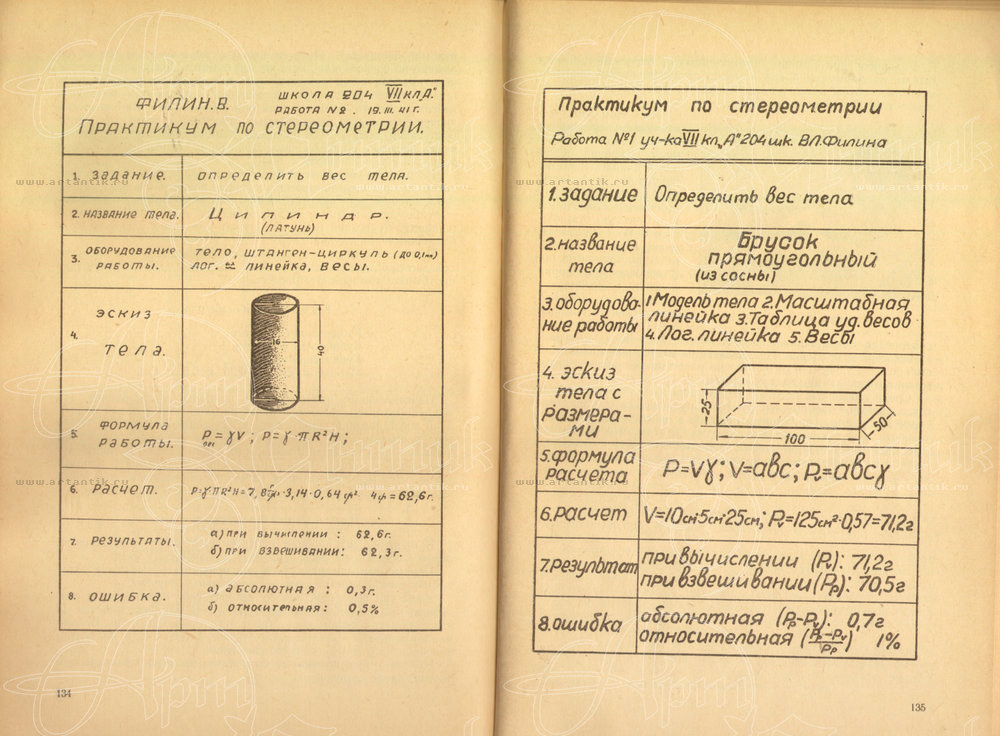 ФИЛИН. В.
ШКОЛА 204 VII КЛ.„А"
РАБОТА №2. 19.III.41 Г.
ПРАКТИКУМ ПО СТЕРЕОМЕТРИИ.
1. ЗАДАНИЕ. ОПРЕДЕЛИТЬ ВЕС ТЕЛА.
2. НАЗВАНИЕ ТЕЛА. ЦИЛИНДР.
(ЛАТУНЬ)
3. ОБОРУДОВАНИЕ РАБОТЫ. ТЕЛО, ШТАНГЕН-ЦИРКУЛЬ (ДО 0,1мм)
ЛОГ. ЛИНЕЙКА, ВЕСЫ.
4. ЭСКИЗ
ТЕЛА.
16
40
5. ФОРМУЛА
РАБОТЫ.
P=γV; P=γ·πR²H;
6. РАСЧЕТ. P=γπR²H=7,8 ·3,14·0,64 см² 4см=62,6г.
7. РЕЗУЛЬТАТЫ. а) ПРИ ВЫЧИСЛЕНИИ: 62,6г.
б) ПРИ ВЗВЕШИВАНИИ: 62,3г.
8. ОШИБКА. а) АБСОЛЮТНАЯ: 0,3г.
б) ОТНОСИТЕЛЬНАЯ: 0,5%
134
Практикум по стереометрии
Работа №1 уч-ка VII кл„А" 204 шк. В.Л.Филина
1. задание Определить вес тела
2. название
тела
Брусок
прямоугольный
(из сосны)
3. оборудова-
ние работы
1 Модель тела 2. Масштабная
линейка 3. Таблица уд. весов
4. Лог. линейка 5. Весы
4. эскиз
тела с
размера-
ми
25
100
50
5. формула
расчета
P=Vγ; V=abc; Pᵥ=abcγ
6. расчет V=10см·5см·25см; Pᵥ=125см²·0,57=71,2г
7. результат при вычислении (Pᵥ): 71,2г
при взвешивании (Pₚ): 70,5г
8. ошибка абсолютная (Pₚ-Pᵥ): 0,7г
относительная (Pₚ-Pᵥ/Pₚ) 1%
135
www.artantik.ru
www.artantik.ru
www.artantik.ru
www.artantik.ru